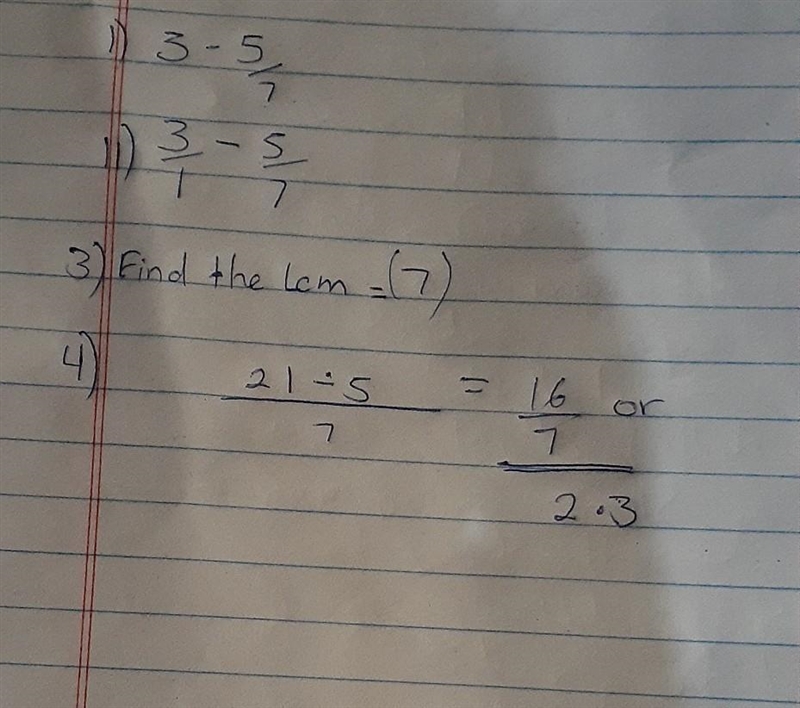 1) 3 - 5/7
11) 3/1 - 5/7
3) Find the Lcm = (7)
4) 21 ÷ 5 / 7 = 16/7 or
2.3